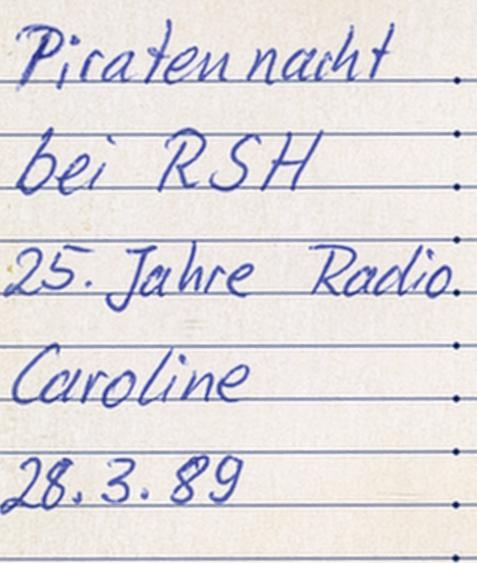 Piratennacht
bei RSH
25. Jahre Radio
Caroline
28.3.89